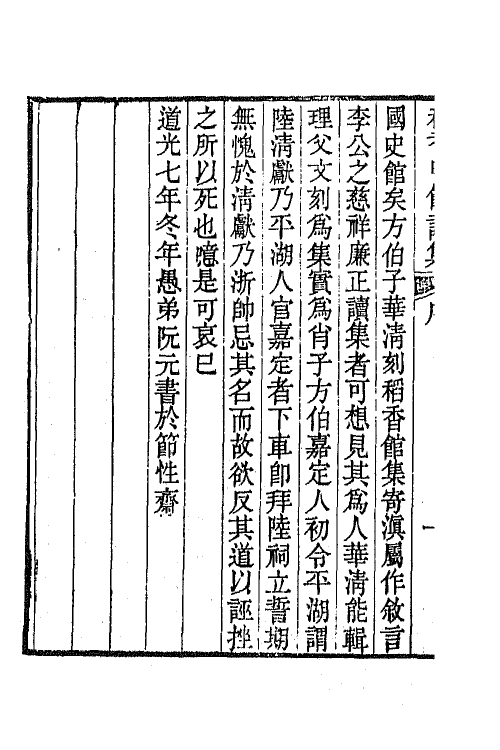 國史館矣方伯子華清刻稻香館集寄滇屬作敘言
李公之慈祥廉正讀集者可想見其為人華清能輯
理父文刻為集實為肖子方伯嘉定人初令平湖謂
陸清獻乃平湖人官嘉定者下車即拜陸祠立誓期
無愧於清獻乃浙帥忌其名而故欲反其道以誣挫
之所以死也噫是可哀已
道光七年冬年愚弟阮元書於節性齋